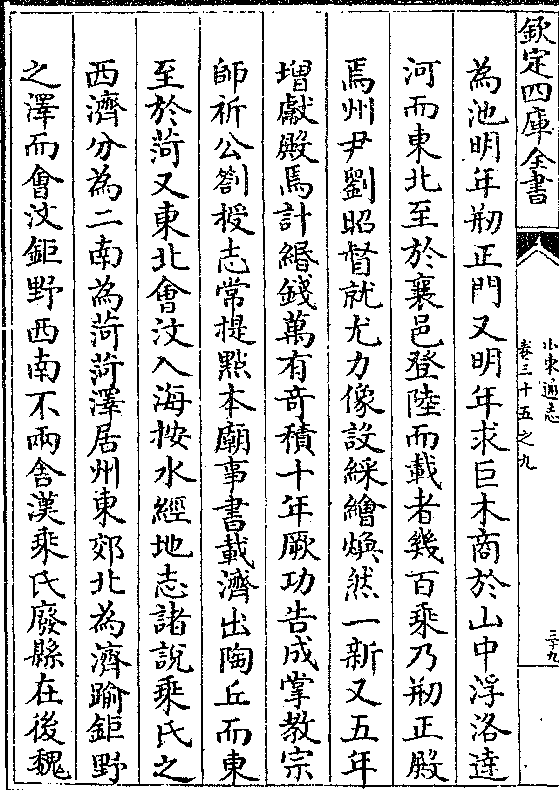 欽定四庫全書
山東通志
卷三十五之九
三十九
為池明年剏正門又明年求巨木商於山中浮洛達
河而東北至於襄邑登陸而載者幾百乘乃剏正殿
焉州尹劉昭督就尤力像設綵繪煥然一新又五年
増獻殿焉計緡錢萬有奇積十年厥功告成掌教宗
師祈公劄授志常提點本廟事書載濟出陶丘而東
至於菏又東北會汶入海按水經地志諸説乗氏之
西濟分為二南為菏菏澤居州東郊北為濟踰鉅野
之澤而會汶鉅野西南不兩舍漢乘氏廢縣在後魏